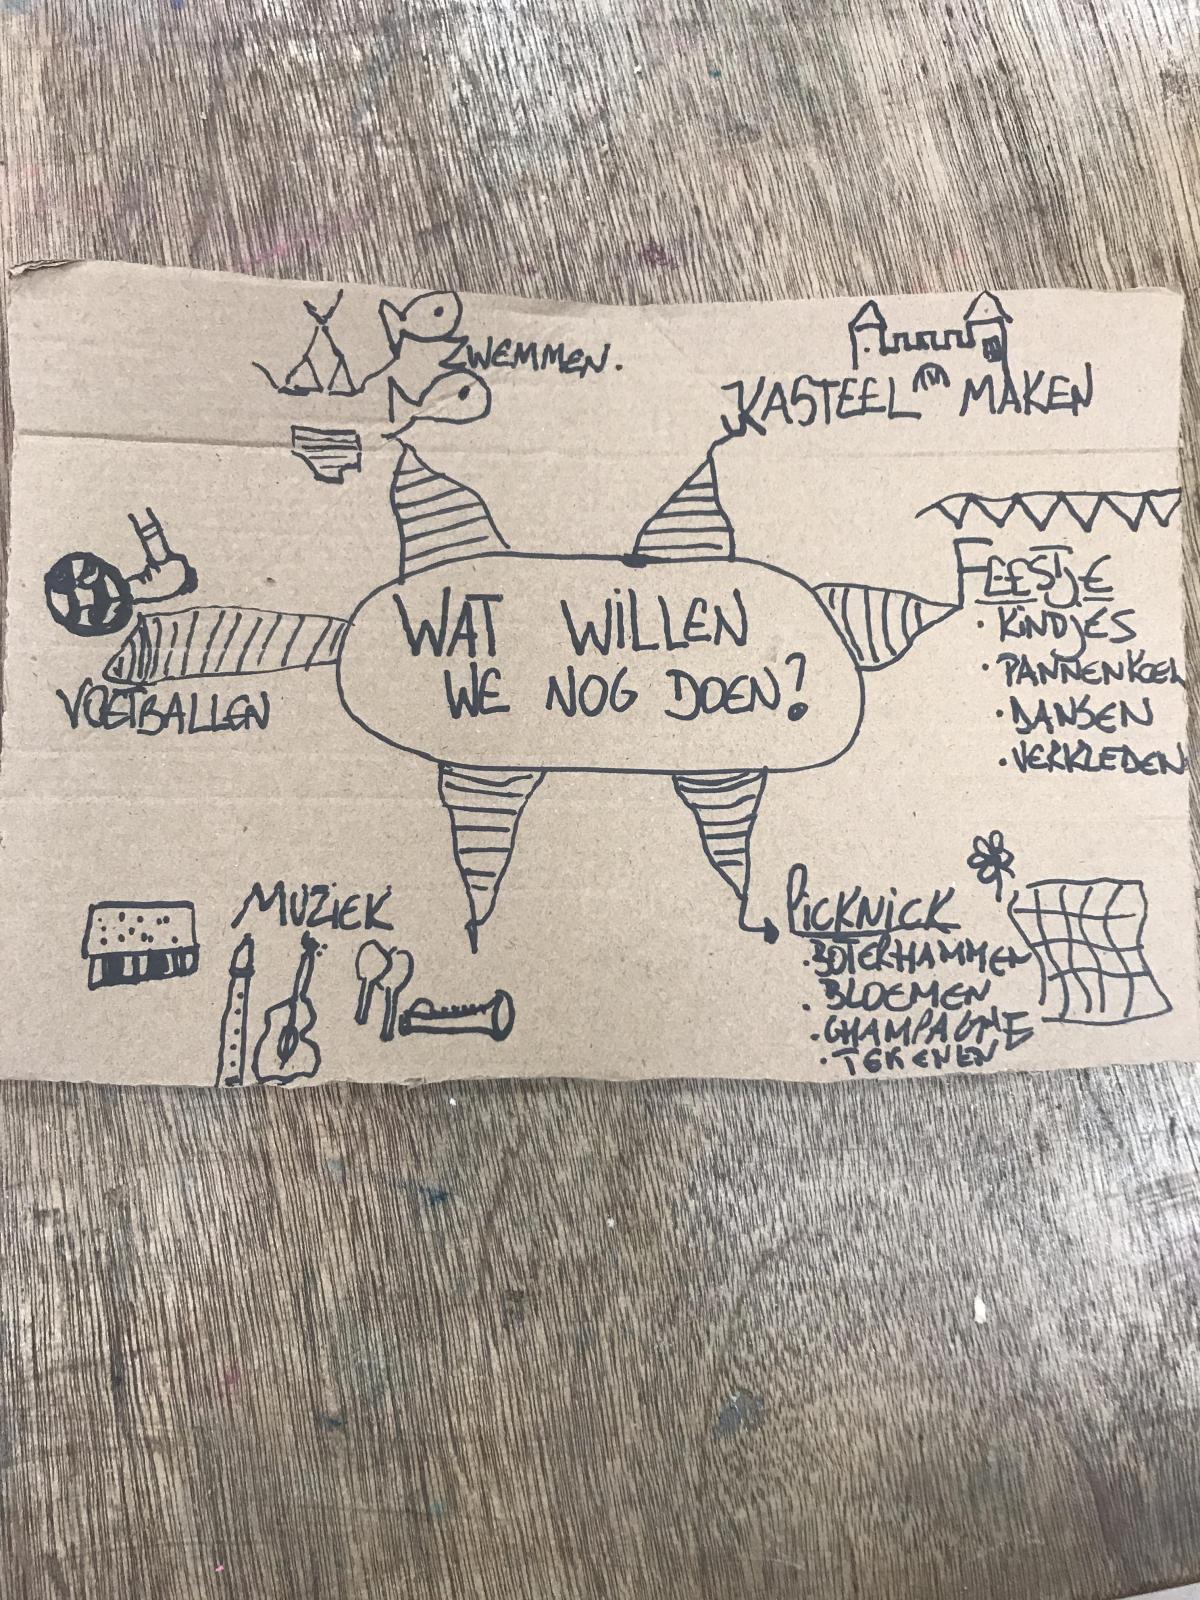 ZWEMMEN.
KASTEEL MAKEN
FEESTJE
· KINDJES
· PANNENKOEK
· DANSEN
· VERKLEDEN
WAT WILLEN
WE NOG DOEN?
VOETBALLEN
MUZIEK
PICKNICK
· BOTERHAMMEN
· BLOEMEN
· CHAMPAGNE
· TEKENEN